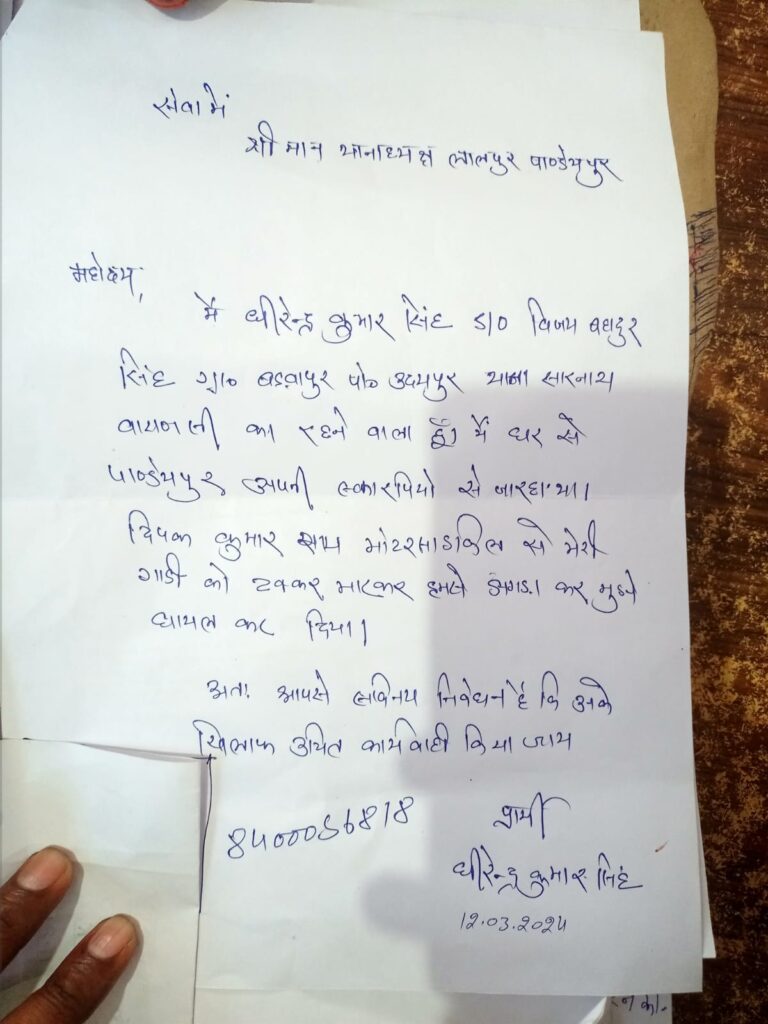 सेवा में
श्री मान थानाध्यक्ष लालपुर पाण्डेयपुर
महोदय,
मैं धीरेन्द्र कुमार सिंह S/O विजय बहादुर
सिंह ग्रा० बडवापुर पो० उदयपुर थाना सारनाथ
वाराणसी का रहने वाला हूँ। मैं घर से
पाण्डेयपुर अपनी स्कारपियो से जा रहा था।
दिपक कुमार राय मोटरसाइकिल से मेरी
गाडी को टक्कर मारकर हमसे झगडा कर मुझे
घायल कर दिया।
अतः आपसे सविनय निवेदन है कि उनके
खिलाफ उचित कार्यवाही किया जाय
8400056818
प्रार्थी
धीरेन्द्र कुमार सिंह
12.03.2024